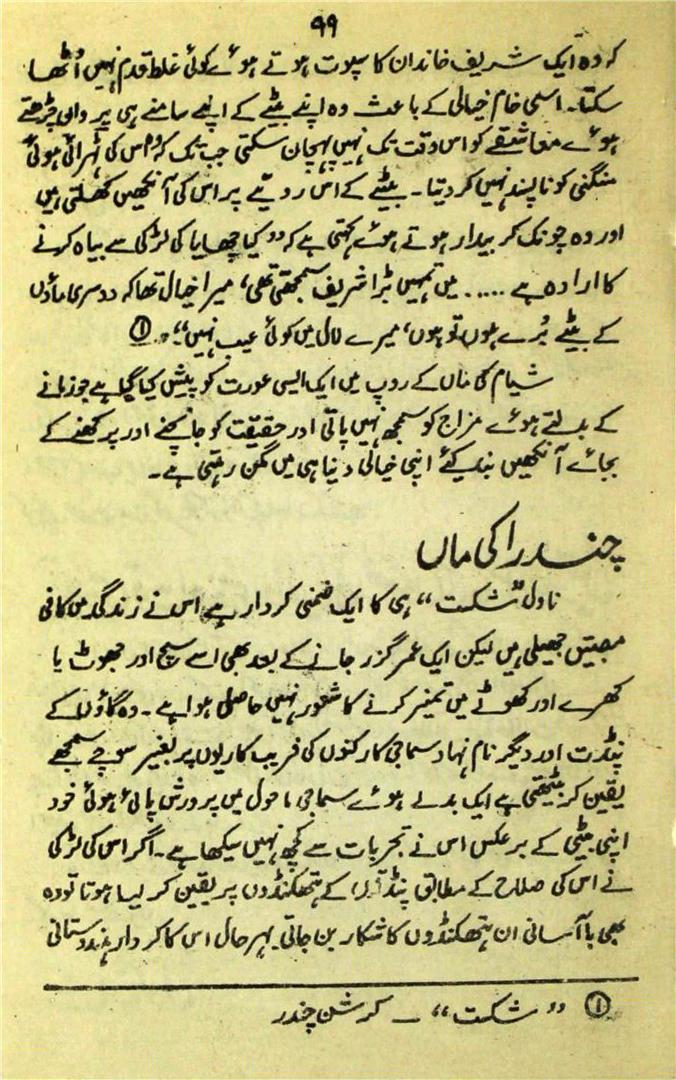 ۹۹
کہ وہ ایک شریف خاندان کا سپوت ہوتے ہوئے کوئی غلط قدم نہیں اُٹھا
سکتا۔ اسی خام خیالی کے باعث وہ اپنے بیٹے کے اپنے سامنے ہی پروان چڑھتے
ہوئے معاشقے کو اس وقت تک نہیں پہچان سکتی جب تک کہ وہ اس کی ٹہرائی ہوئی
منگنی کو ناپسند نہیں کر دیتا۔ بیٹے کے اس رویے پر اس کی آنکھیں کھلتی ہیں
اور وہ چونک کر بیدار ہوتے ہوئے کہتی ہے کہ ”کیا چھایا کی لڑکی سے بیاہ کرنے
کا ارادہ ہے ..... میں تمہیں بڑا شریف سمجھتی تھی، میرا خیال تھا کہ دوسری ماؤں
کے بیٹے بُرے ہوں تو ہوں، میرے لال میں کوئی عیب نہیں“۔ ①
شیام کی ماں کے روپ میں ایک ایسی عورت کو پیش کیا گیا ہے جو زمانے
کے بدلتے ہوئے مزاج کو سمجھ نہیں پاتی اور حقیقت کو جانچنے اور پرکھنے کے
بجائے آنکھیں بند کئے اپنی خیالی دنیا ہی میں مگن رہتی ہے۔
چندرا کی ماں
ناول ”شکست“ ہی کا ایک ضمنی کردار ہے اس نے زندگی میں کافی
مصیبتیں جھیلی ہیں لیکن ایک عمر گزر جانے کے بعد بھی اسے سچ اور جھوٹ یا
کھرے اور کھوٹے میں تمیز کرنے کا شعور نہیں حاصل ہوا ہے۔ وہ گاؤں کے
پنڈت اور دیگر نام نہاد سماجی کارکنوں کی فریب کاریوں پر بغیر سوچے سمجھے
یقین کر بیٹھتی ہے ایک بدلے ہوئے سماجی ماحول میں پرورش پائی ہوئی خود
اپنی بیٹی کے برعکس اس نے تجربات سے کچھ نہیں سیکھا ہے۔ اگر اس کی لڑکی
نے اس کی صلاح کے مطابق کے ہتھکنڈوں پر یقین کر لیا ہوتا تو وہ
بھی باآسانی ان ہتھکنڈوں کا شکار بن جاتی بہرحال اس کا کردار ہندوستانی
① ”شکست“ ۔ کرشن چندر